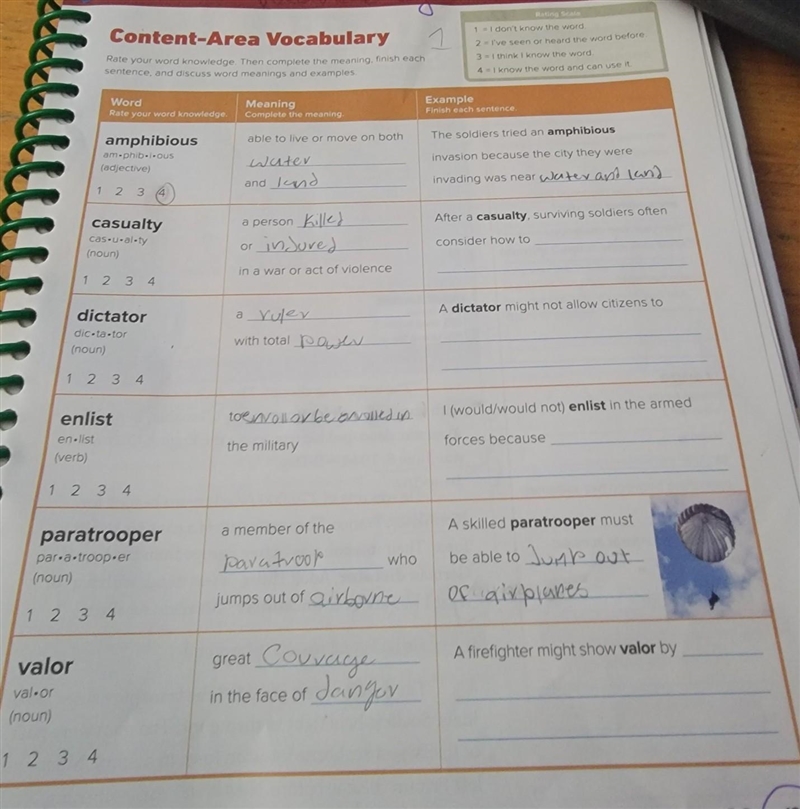 Content-Area Vocabulary
1
Rate your word knowledge. Then complete the meaning, finish each
sentence, and discuss word meanings and examples.
Rating Scale
1 = I don't know the word.
2 = I've seen or heard the word before.
3 = I think I know the word.
4 = I know the word and can use it.
Word
Rate your word knowledge.
Meaning
Complete the meaning.
Example
Finish each sentence.
amphibious
am•phib•i•ous
(adjective)
1 2 3 4
able to live or move on both
water
and land
The soldiers tried an amphibious
invasion because the city they were
invading was near water and land
casualty
cas•u•al•ty
(noun)
1 2 3 4
a person killed
or injured
in a war or act of violence
After a casualty, surviving soldiers often
consider how to
dictator
dic•ta•tor
(noun)
1 2 3 4
a ruler
with total power
A dictator might not allow citizens to
enlist
en•list
(verb)
1 2 3 4
to enroll or be enrolled in
the military
I (would/would not) enlist in the armed
forces because
paratrooper
par•a•troop•er
(noun)
1 2 3 4
a member of the
paratroop who
jumps out of airborne
A skilled paratrooper must
be able to Jump out
of airplanes
valor
val•or
(noun)
1 2 3 4
great Courage
in the face of dangor
A firefighter might show valor by